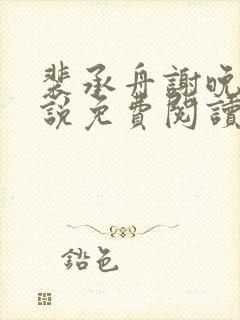 裴承舟謝晚
說免費閱讀
鉛色